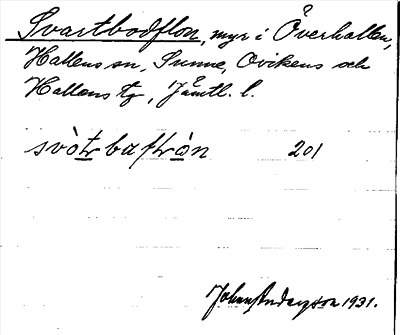 Svartbodflon, myr i Överhallen,
Hallens sn, Sunne, Ovikens och
Hallens tg, Jämtl. l.
svòtrbaftròn 201
Johan Anderzson 1931.